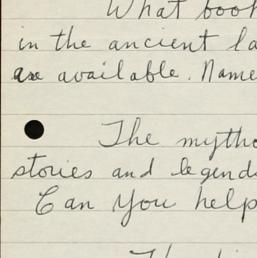 What book
in the ancient la
are available. Name
The mytho
stories and legend
Can You help